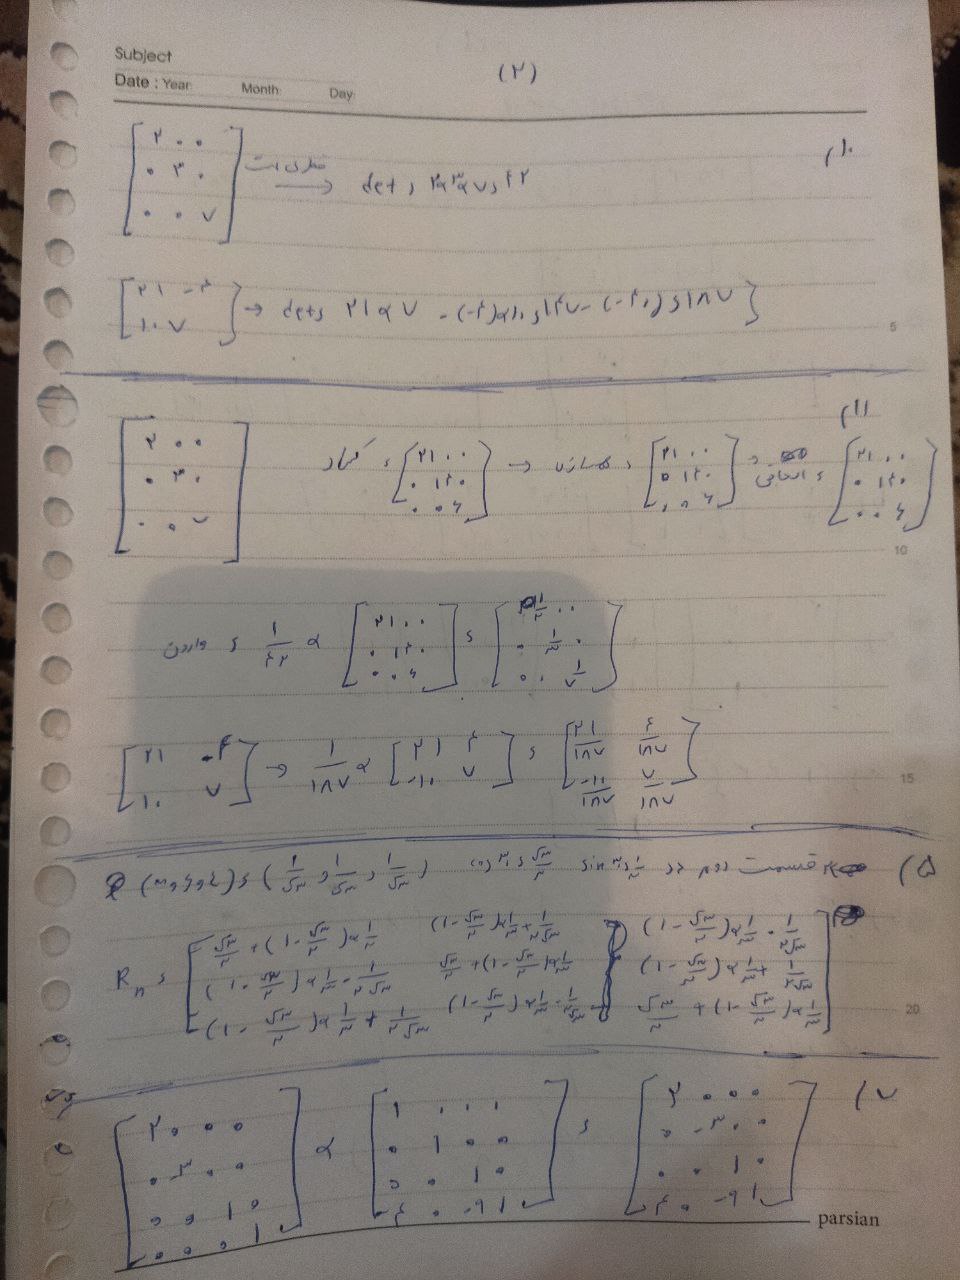 Subject
(۲)
Date : Year: Month: Day:
۱۰)
[۲ ۰ ۰
۰ ۳ ۰
۰ ۰ ۷] قطری است → det = ۲×۳×۷ = ۴۲
[۲۱ -۴
۱۰ ۷] → det = ۲۱×۷ - (-۴)×۱۰ = ۱۴۷ - (-۴۰) = ۱۸۷
5
۱۱)
[۲ ۰ ۰
۰ ۳ ۰
۰ ۰ ۷]
= [۲۱ ۰ ۰
۰ ۱۴ ۰
۰ ۰ ۶] → = [۲۱ ۰ ۰
۰ ۱۴ ۰
۰ ۰ ۶] = الحاقی = [۲۱ ۰ ۰
۰ ۱۴ ۰
۰ ۰ ۶]
10
وارون = ۱/۴۲ × [۲۱ ۰ ۰
۰ ۱۴ ۰
۰ ۰ ۶] = [۱/۲ ۰ ۰
۰ ۱/۳ ۰
۰ ۰ ۱/۷]
[۲۱ -۴
۱۰ ۷] → ۱/۱۸۷ × [۲۱ ۴
-۱۰ ۷] = [۲۱/۱۸۷ ۴/۱۸۷
-۱۰/۱۸۷ ۷/۱۸۷]
15
۵)
قسمت دوم در sin ۳۰ = ۱/۲ cos ۳۰ = √۳/۲ = (۱/√۳ , ۱/√۳ , ۱/√۳)
Rn = [√۳/۲ + (۱-√۳/۲)×۱/۳ (۱-√۳/۲)×۱/۳+۱/۲√۳ (۱-√۳/۲)×۱/۳-۱/۲√۳
(۱-√۳/۲)×۱/۳-۱/۲√۳ √۳/۲ + (۱-√۳/۲)×۱/۳ (۱-√۳/۲)×۱/۳+۱/۲√۳
(۱-√۳/۲)×۱/۳+۱/۲√۳ (۱-√۳/۲)×۱/۳-۱/۲√۳ √۳/۲ + (۱-√۳/۲)×۱/۳]
20
۷)
[۲ ۰ ۰ ۰
۰ -۳ ۰ ۰
۰ ۰ ۱ ۰
۰ ۰ ۰ ۱] × [۱ ۰ ۰ ۰
۰ ۱ ۰ ۰
۰ ۰ ۱ ۰
۴ ۰ -۹ ۱] = [۲ ۰ ۰ ۰
۰ -۳ ۰ ۰
۰ ۰ ۱ ۰
۴ ۰ -۹ ۱]
parsian